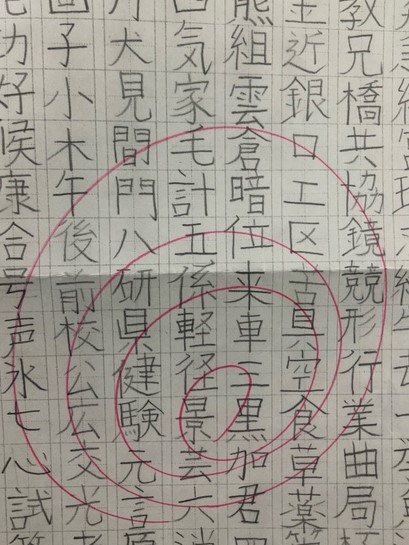 教兄橋共協鏡競形行業曲局
近銀口工区苦具空食草薬
熊組雲倉暗位来車三黒加君
気家毛計五係軽径景芸六
犬見間門八研県健験元言原
子小木午後前校公広交光
功好候康合号声氷七心試